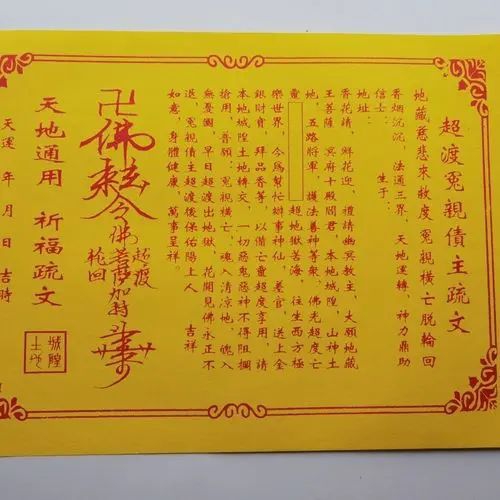 超渡冤親債主疏文
地藏慈悲來救度冤親橫亡脫輪回
香烟沉沉,法通三界,天地運轉,神力鼎助
信士: 生于:
地址:
香花請,鮮花迎,禮請幽冥教主,大願地藏
王菩薩,冥府十殿閻君,本地城隍,山神土
地,五路將軍,護法善神等衆,佛光超度亡
靈 超地獄苦海,往生西方極
樂世界,今爲幫忙辦事神仙,善官,送上金
銀財寶,拜品香等,以備亡靈超度享用,請
本地城隍土地轉交,一切惡鬼惡神不得阻攔
搶用,普願:冤親橫亡,魂入清凉地,魄入
無憂園,早日超渡出地獄,花開見佛永正不
退,冤親債主超渡後保佑陽上人,吉祥
如意,身體健康,萬事呈祥。
卍佛敕令佛
超渡
菩薩加持
輪回
天地通用 祈福疏文
城隍
土地
天運 年 月 日 吉時